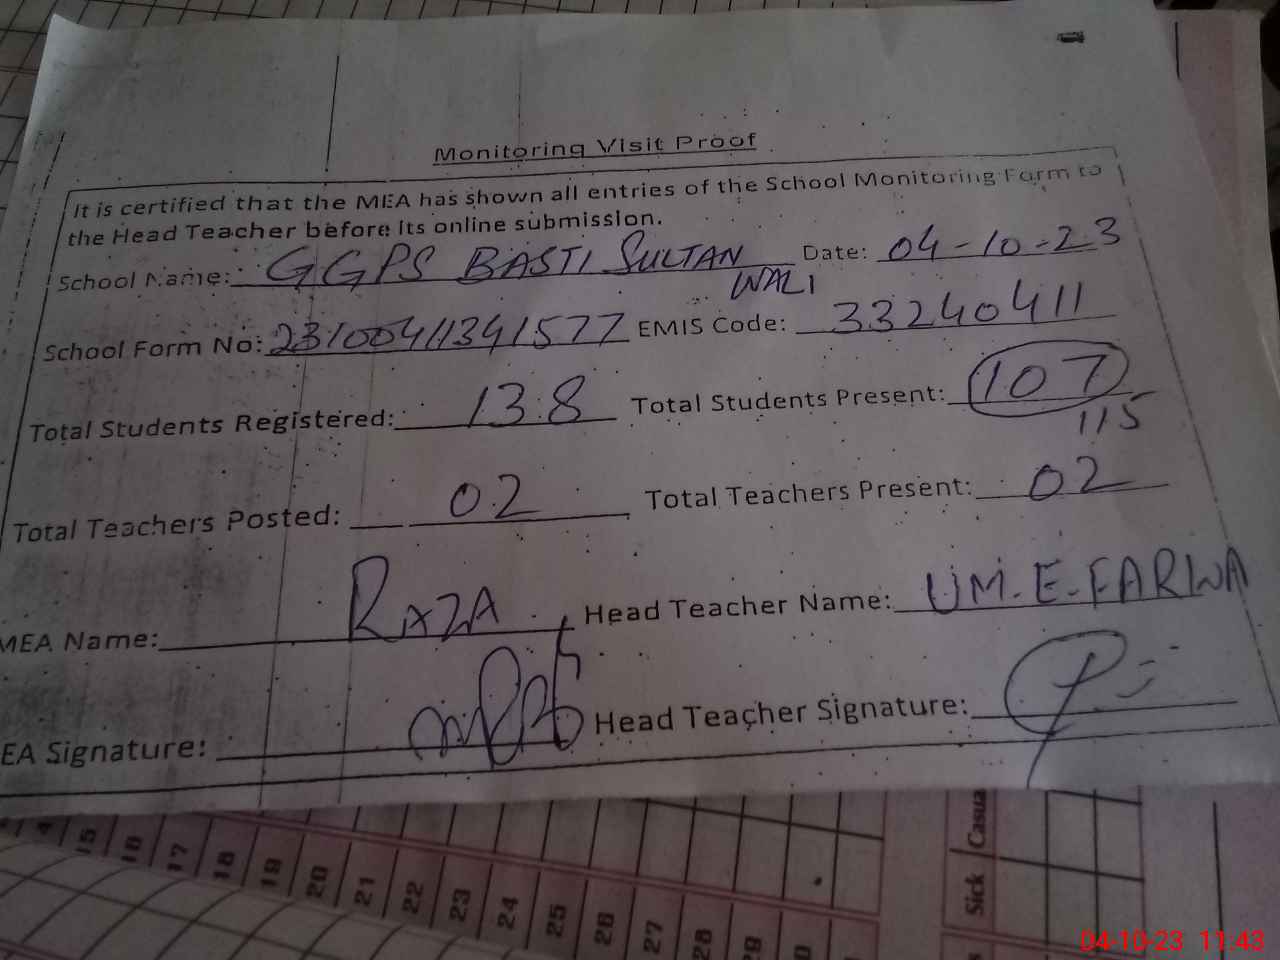 Monitoring Visit Proof
It is certified that the MEA has shown all entries of the School Monitoring Form to
the Head Teacher before its online submission.
School Name: GGPS BASTI SULTAN WALI Date: 04-10-23
School Form No: 23100411341577 EMIS Code: 33240411
Total Students Registered: 138 Total Students Present: 107
115
Total Teachers Posted: 02 Total Teachers Present: 02
MEA Name: RAZA Head Teacher Name: UM-E-FARWA
EA Signature: Head Teacher Signature:
14 15 16 17 18 19 20 21 22 23 24 25 26 27 28 29
Sick Casua
04-10-23 11:43